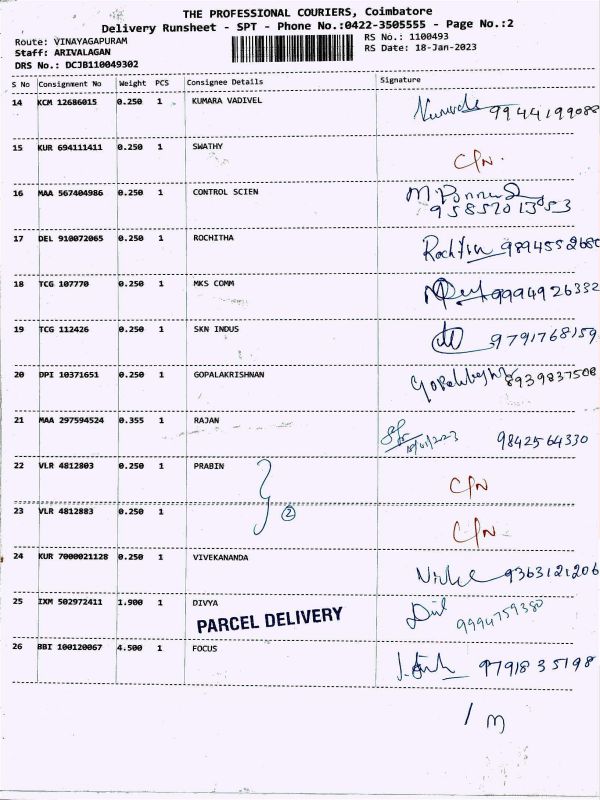 THE PROFESSIONAL COURIERS, Coimbatore
Delivery Runsheet - SPT - Phone No.:0422-3505555 - Page No.:2
Route: VINAYAGAPURAM
RS No.: 1100493
Staff: ARIVALAGAN
RS Date: 18-Jan-2023
DRS No.: DCJB110049302
S No Consignment No Weight PCS Consignee Details Signature
14 KCM 12686015 0.250 1 KUMARA VADIVEL 9944199088
15 KUR 694111411 0.250 1 SWATHY C/N.
16 MAA 567404986 0.250 1 CONTROL SCIEN
95852013053
17 DEL 910072065 0.250 1 ROCHITHA 9894552680
18 TCG 107770 0.250 1 MKS COMM 9994926332
19 TCG 112426 0.250 1 SKN INDUS 9791768159
20 DPI 10371651 0.250 1 GOPALAKRISHNAN 8939837508
21 MAA 297594524 0.355 1 RAJAN 18/01/2023 9842564330
22 VLR 4812803 0.250 1 PRABIN C/N
23 VLR 4812883 0.250 1 2 C/N
24 KUR 7000021128 0.250 1 VIVEKANANDA 9363121206
25 IXM 502972411 1.900 1 DIVYA 9994759380
PARCEL DELIVERY
26 BBI 100120067 4.500 1 FOCUS 9791835198